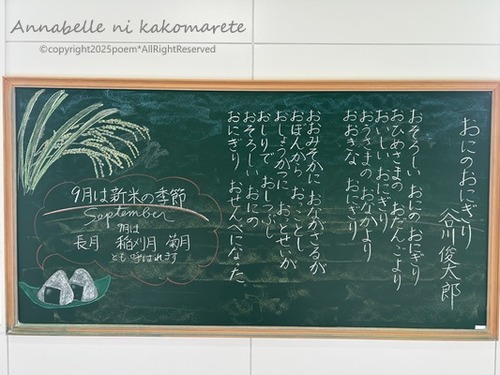 Annabelle ni kakomarete
©copyright2025poem*AllRightReserved
おにのおにぎり
谷川 俊太郎
おそろしい おにの おにぎり
おひめさまの おだんごより
おいしい おにぎり
おうさまの おなかより
おおきな おにぎり
おおみそかに おなかさるが
おぼんから おっことし
おしょうがつに おっとせいが
おしりで おしつぶし
おそろしい おにの
おにぎり おせんべになった
9月は新米の季節
September
9月は
長月 稲刈月 菊月
とも呼ばれます